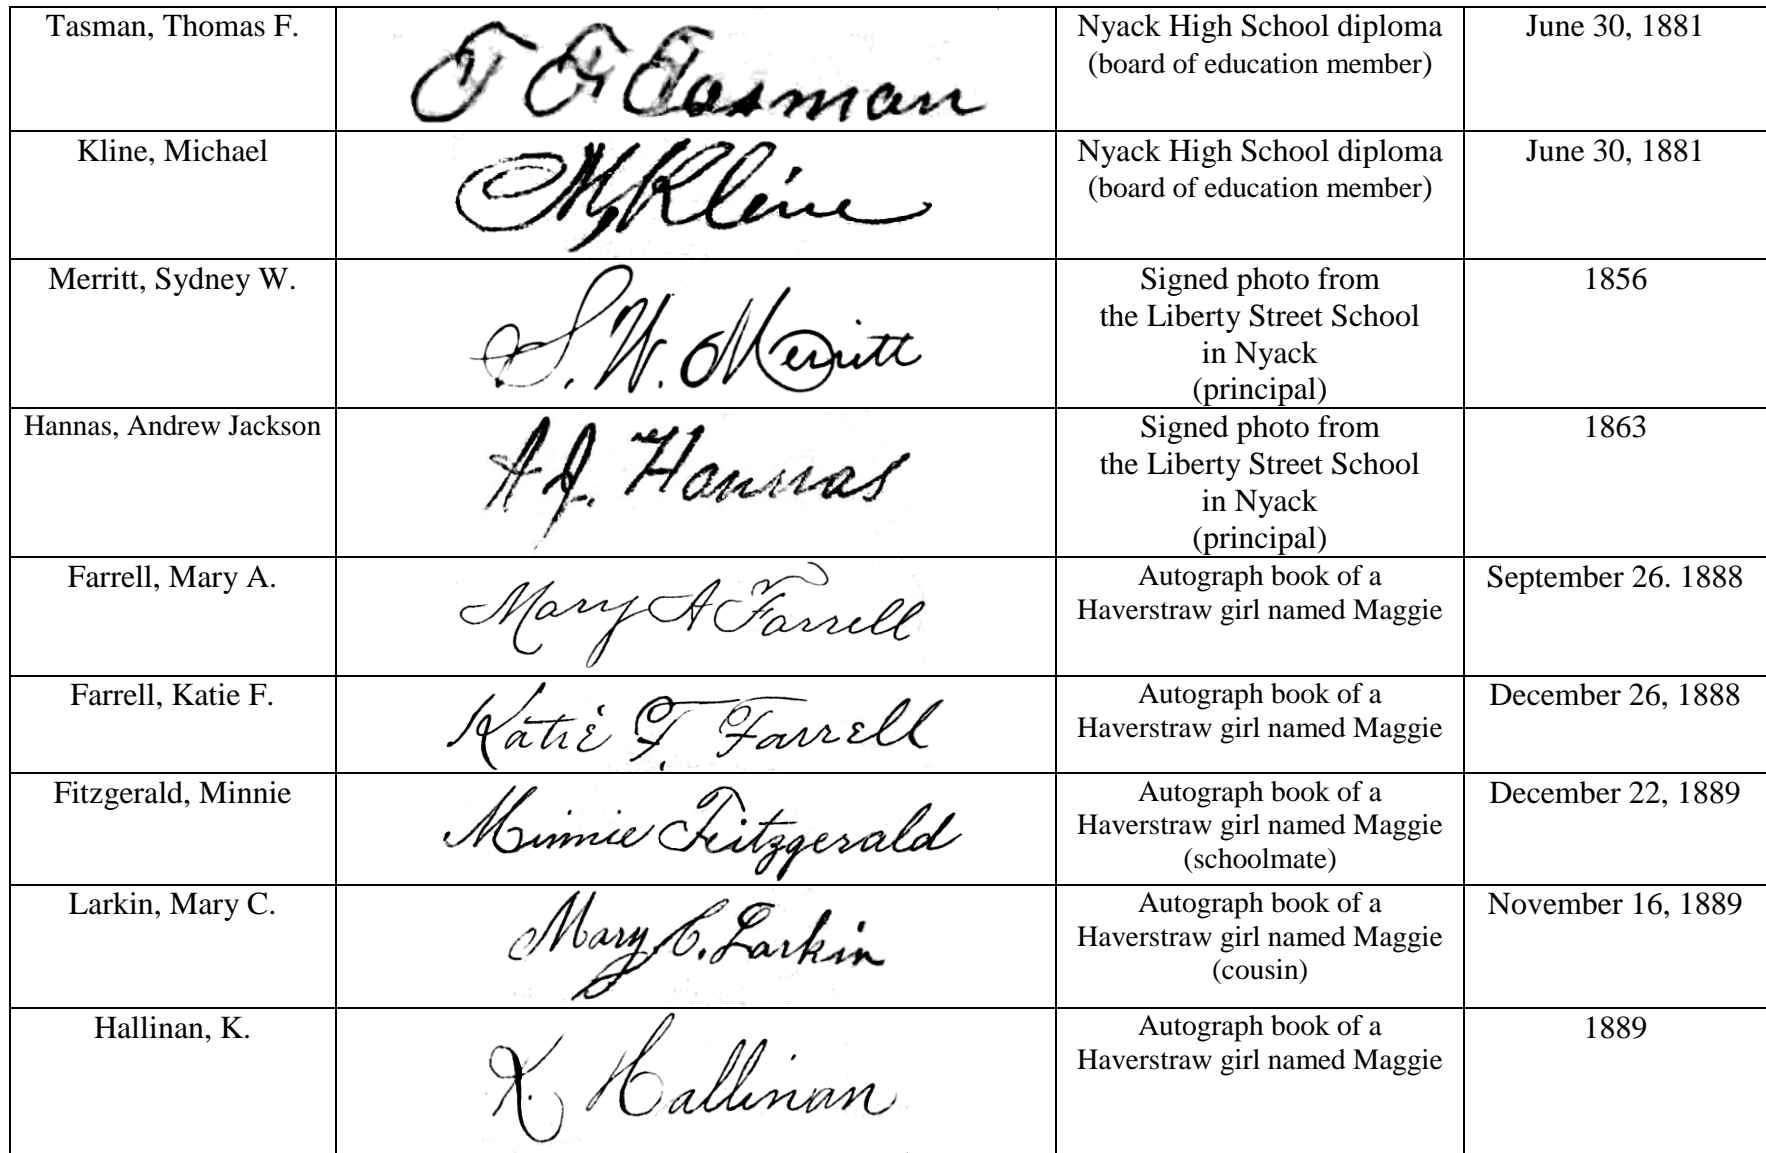 Tasman, Thomas F.
T F Tasman
Nyack High School diploma
(board of education member)
June 30, 1881
Kline, Michael
M Kline
Nyack High School diploma
(board of education member)
June 30, 1881
Merritt, Sydney W.
S. W. Merritt
Signed photo from
the Liberty Street School
in Nyack
(principal)
1856
Hannas, Andrew Jackson
A J. Hannas
Signed photo from
the Liberty Street School
in Nyack
(principal)
1863
Farrell, Mary A.
Mary A Farrell
Autograph book of a
Haverstraw girl named Maggie
September 26. 1888
Farrell, Katie F.
Katie F. Farrell
Autograph book of a
Haverstraw girl named Maggie
December 26, 1888
Fitzgerald, Minnie
Minnie Fitzgerald
Autograph book of a
Haverstraw girl named Maggie
(schoolmate)
December 22, 1889
Larkin, Mary C.
Mary C. Larkin
Autograph book of a
Haverstraw girl named Maggie
(cousin)
November 16, 1889
Hallinan, K.
K. Hallinan
Autograph book of a
Haverstraw girl named Maggie
1889